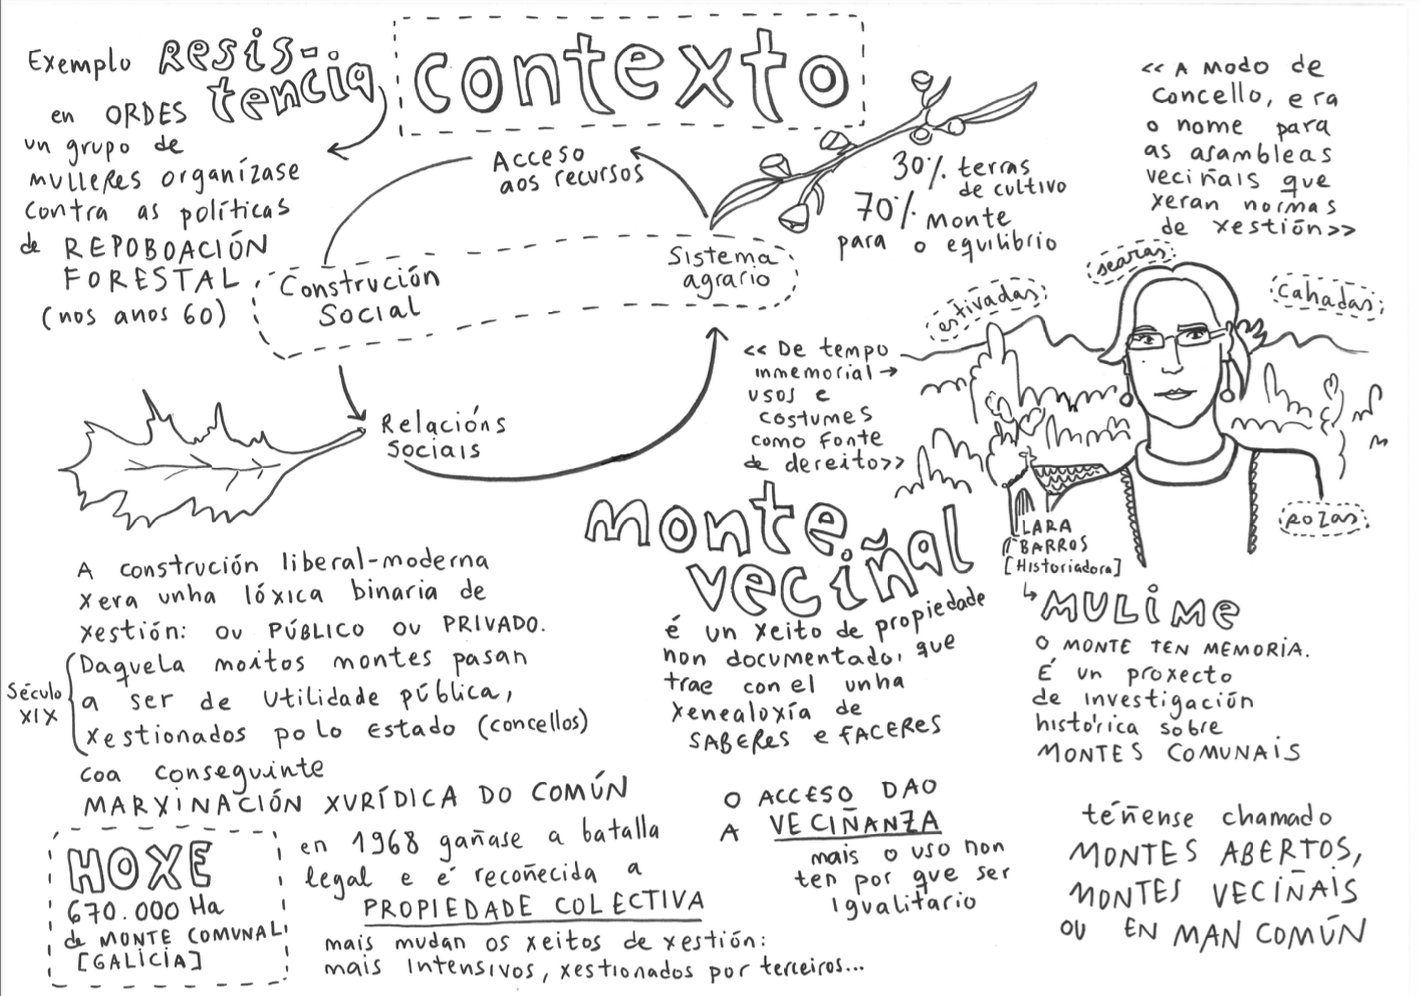 Contexto
Exemplo Resis-
tencia
en ORDES
un grupo de
mulleres organízase
contra as políticas
de REPOBOACIÓN
FORESTAL
(nos anos 60)
Acceso
aos recursos
Construción
Social
Sistema
agrario
Relacións
Sociais
30% terras
de cultivo
70% monte
para o equilibrio
<< A modo de
concello, era
o nome para
as asambleas
veciñais que
xeran normas
de xestión>>
searas
estivadas
cahadas
rozas
<< De tempo
inmemorial →
usos e
costumes
como fonte
de dereito>>
LARA
BARROS
[Historiadora]
MULIME
O MONTE TEN MEMORIA.
É un proxecto
de investigación
histórica sobre
MONTES COMUNAIS
monte
veciñal
é un xeito de propiedade
non documentado, que
trae con el unha
xenealoxía de
SABERES e FACERES
A construción liberal-moderna
xera unha lóxica binaria de
xestión: ou PÚBLICO OU PRIVADO.
Século
XIX
Daquela moitos montes pasan
a ser de utilidade pública,
xestionados polo Estado (concellos)
coa conseguinte
MARXINACIÓN XURÍDICA DO COMÚN
HOXE
670.000 Ha
de MONTE COMUNAL
[GALICIA]
en 1968 gañase a batalla
legal e é recoñecida a
PROPIEDADE COLECTIVA
mais mudan os xeitos de xestión:
mais intensivos, xestionados por terceiros...
O ACCESO DAO
A VECIÑANZA
mais o uso non
ten por que ser
igualitario
téñense chamado
MONTES ABERTOS,
MONTES VECIÑAIS
OU EN MAN COMÚN